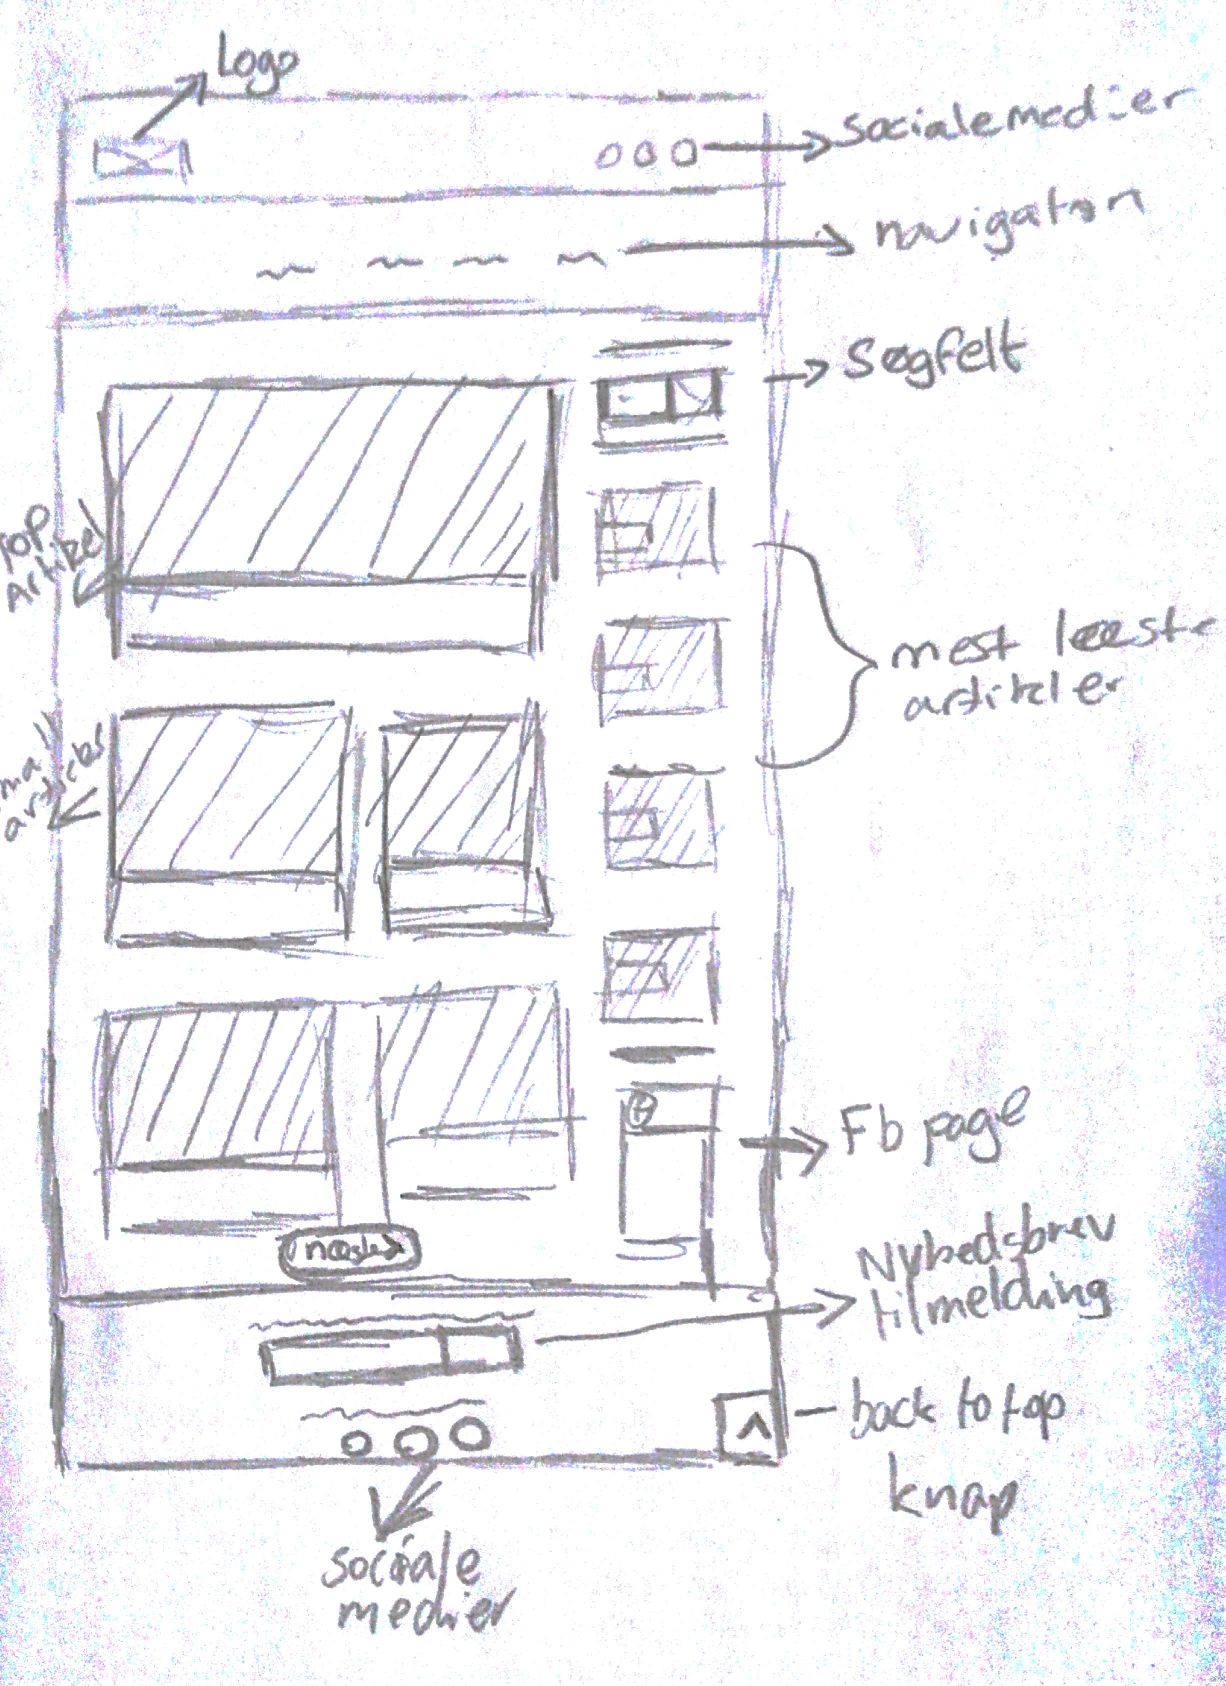 Logo
sociale medier
navigation
Søgfelt
TOP
Artikel
mest læeste
artikler
small
articles
Fb page
næste
Nyhedsbrev
tilmelding
back to top
knap
sociale
medier